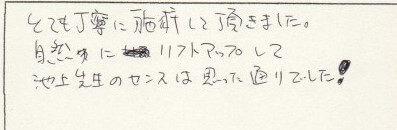 とても丁寧に施術して頂きました。
自然にリフトアップして
池上先生のセンスは思った通りでした!